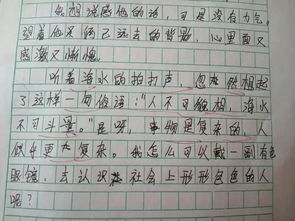 我想说感他的话，可是没有力气，
望着他足的已远去的背影，心里面又
感激又惭愧。
听着海水的拍打声，忽然想起
了这样一句俗语："人不可貌相，海水
不可斗量。"是呀，事物是复杂的，人
似乎更加复杂。我怎么可以戴一副有色
眼镜，去认识社会上形形色色的人
呢？